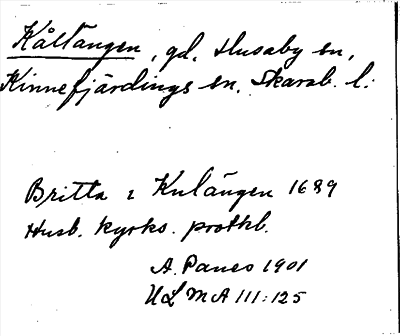 Kåltängen, gd. Husaby sn,
Kinnefjärdings sn. Skarab. l.
Britta i Kulängen 1689
Husb. kyrks. protkl.
A. Panes 1901
ULMA 111:125